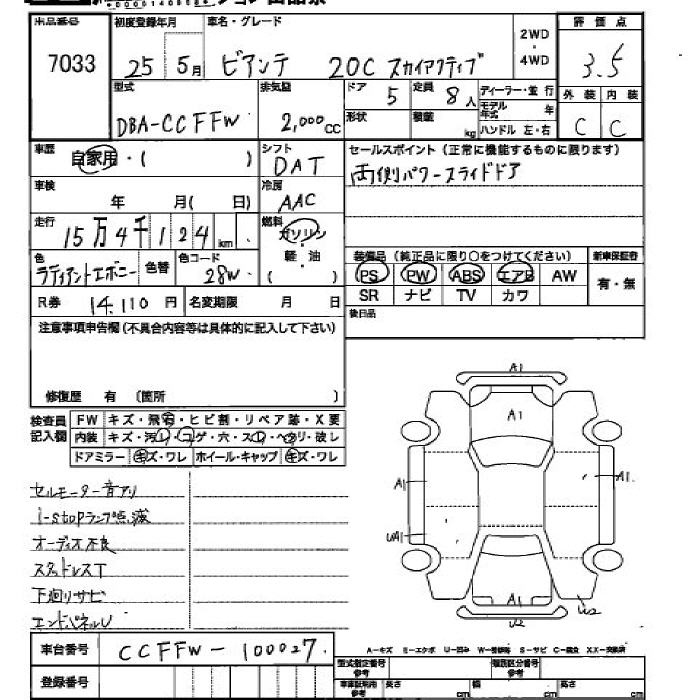 出品番号 初度登録年月 車名・グレード 2WD・4WD 評価点
7033 25 5月 ビアンテ 20C スカイアクティブ 3.5
型式 排気量 ドア 定員 ディーラー・並行 外装 内装
DBA-CCFFW 2,000cc 5 8人 モデル年式 年 C C
形状 積載 kg ハンドル 左・右
車歴 自家用・( ) シフト DAT セールスポイント(正常に機能するものに限ります)
両側パワースライドドア
車検 年 月( 日) 冷房 AAC
走行 15万4千124km 燃料 ガソリン・軽油 ( )
色 ラディアントエボニー 色替 色コード 28W
装備品(純正品に限り○をつけてください) 新車保証書
PS PW ABS エアB AW 有・無
SR ナビ TV カワ
R券 14,110円 名変期限 月 日 後日品
注意事項申告欄(不具合内容等は具体的に記入して下さい)
修復歴 有 (箇所 )
検査員記入欄 FW キズ・飛石・ヒビ割・リペア跡・X要
内装 キズ・汚レ・コゲ・穴・スレ・ヘタリ・破レ
ドアミラー キズ・ワレ ホイール・キャップ キズ・ワレ
セルモーター音アリ
i-stopランプ点滅
オーディオ不良
スタッドレスT
下廻りサビ
エンドパネルU
A1
A1
A1 A1
UA1
A1 W2
U2
車台番号 CCFFW-100027
A-キズ E-エクボ U-凹み W-補修跡 S-サビ C-腐食 XX-交換済
登録番号 型式指定番号 参考 類別区分番号 参考
車庫証明用 参考 長さ cm 幅 cm 高さ cm